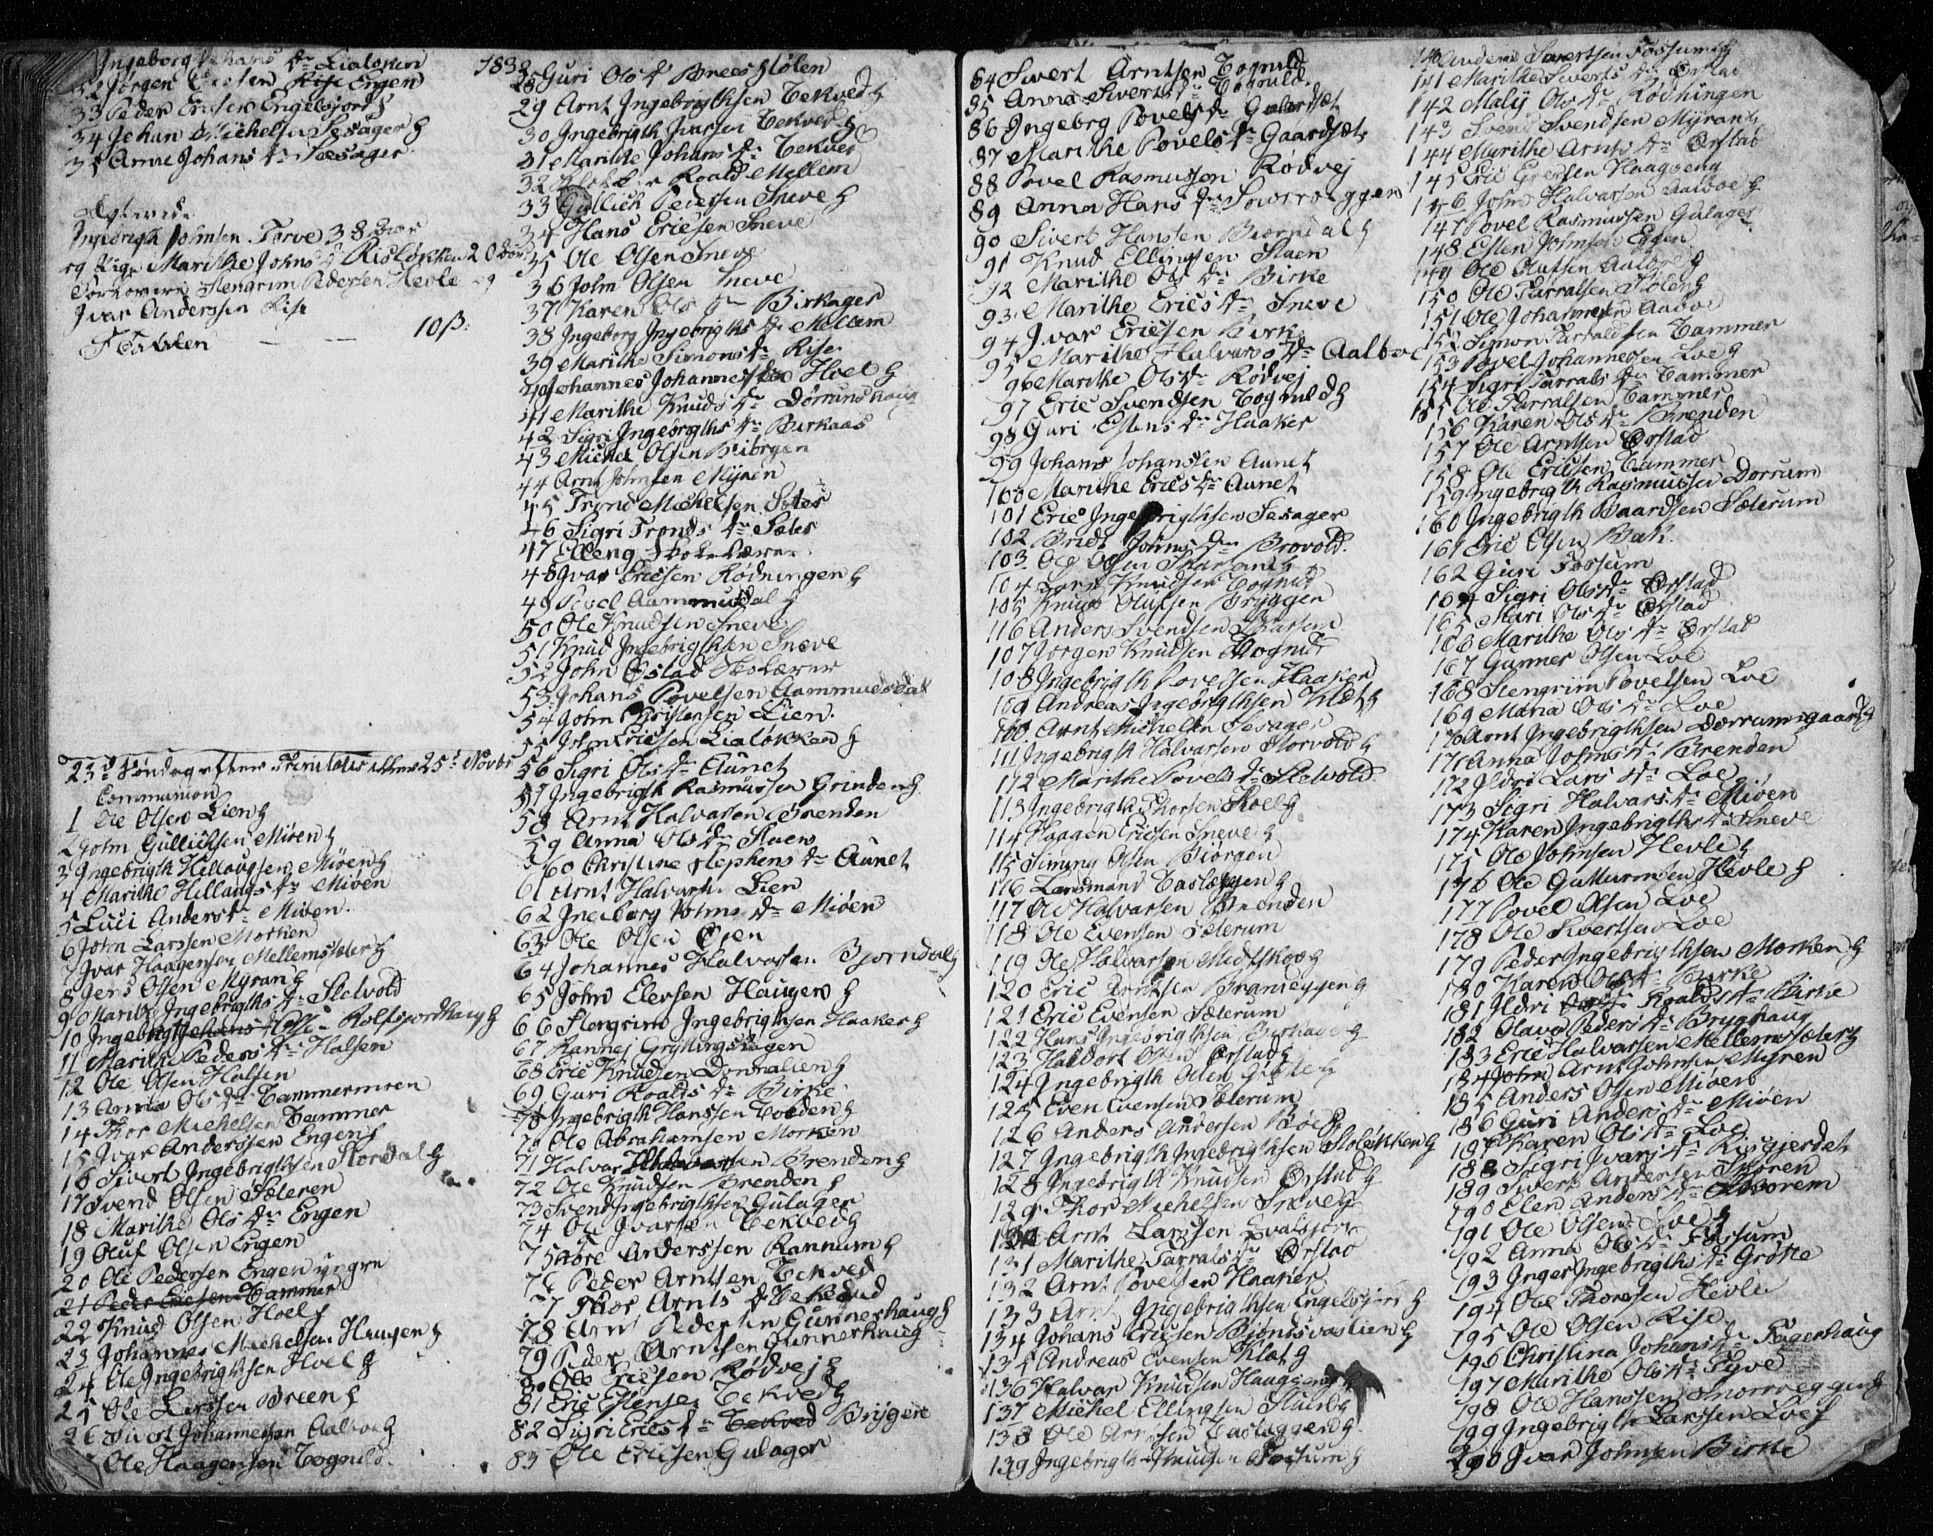 Ingeborg Johans dr Lialøkken
32 Jørgen Ericsen Rise Engen
33 Peder Ericsen Engelsjord h
34 Johan Michelsen Sesager h
35 Anne Johans dr Seesager
Ægteviede
Ingebrigth Johnsen Torve 38 Aar
og Pige Marithe Johns dr Risløkken 20 Aar
Forlovere Stengrim Pedersen Hevle og
Ivar Anderssen Rise
I Tavlen — — 10 β.
23de Søndag efter Trinitatis eller 25de Novbr
Communion
1 Ole Olsen Lien h
2 John Gullichsen Miøen h
3 Ingebrigth Hellaugsen Miøen h
4 Marithe Hellaugs dr Miøen
5 Luci Anders dr Miøen.
6 John Larssen Morken
7 Ivar Haagensen Mellemsæter h
8 Jens Olsen Myran h
9 Marithe Ingebrigths dr Stelvold
10 Ingeborg Johans dr Rolfsjordhaug h
11 Marithe Peders dr Halsen
12 Ole Olsen Halsen
13 Anna Ols dr Tammermoen
14 Thor Michelsen Tammer
15 Ivar Anderssen Engen h
16 Sivert Ingebrigthsen Stordal h
17 Svend Olsen Sæteren
18 Marithe Ols dr Engen
19 Oluf Olsen Engen
20 Ole Pedersen Engen yngre
21 Peder Ericsen Tammer
22 Knud Olsen Hoel h
23 Johannes Michelsen Haugen h
24 Ole Ingebrigthsen Hoel h
25 Ole Larssen Breen h
26 Sivert Johannessen Aalboe h
Ole Haagensen Tognild.
1832
28 Guri Ols dr Breesstølen
29 Arnt Ingebrigthsen Tekved h
30 Ingebrigth Ivarsen Tekved h
31 Marithe Johans dr Tekved
32 Roald Mellem
33 Gullich Pedersen Sneve h
34 Hans Ericsen Sneve
35 Ole Olsen Sneve
36 John Olsen Sneve
37 Karen Ols dr Birkager
38 Ingeborg Ingebrigths dr Mellem
39 Marithe Simons dr Rise
40 Johannes Johannessen Hoel h
41 Marithe Knuds dr Dørrumshaug
42 Sigri Ingebrigths dr Birkaas
43 Michel Olsen Biørgen
44 Arnt Johnsen Myren
45 Trond Michelsen Sæter
46 Sigri Tronds dr Sæter
47 Elleng Skolelærer
48 Ivar Ericsen Rødningen h
49 Povel Aammusdal h
50 Ole Knudsen Sneve
51 Knud Ingebrigthsen Sneve
52 John Ørstad Skolelærer
53 Johans Povelsen Aammuesdal
54 John Christensen Lien.
55 John Ericsen Lialøkken h
56 Sigri Ols dr Aunet
57 Ingebrigth Rasmussen Grinden h
58 Arnt Halvarsen Brenden
59 Anna Ols dr Staen
60 Christine Stephens dr Aunet
61 Arnt Halvarsen Lien
62 Ingeborg Johns dr Miøen
63 Ole Olsen Øien
64 Johannes Halvarsen Bjørndal h
65 John Elevsen Haugen h
66 Stengrim Ingebrigthsen Haaker h
67 Rannej Gryttingsdagen
68 Eric Knudsen Donnalien h
69 Guri Roalds dr Birke
70 Ingebrigth Hanssen Tovden h
70 Ole Abrahamsen Morken
71 Halvar Halvarsen Brenden h
72 Ole Knudsen Brenden h
73 Svend Ingebrigthsen Gulager
74 Ole Ivarsen Tekved h
75 Tore Anderssen Rannum h
76 Peder Arntsen Tekved
77 Thor Arnts dr Tekved
78 Arnt Pedersen Gunnershaug h
79 Peder Arntsen Gunnerhaug
80 Ole Ericsen Rødvej h
81 Eric Estensen Tekved h
82 Sigri Erics dr Tekved Brygen
83 Ole Ericsen Gulager
84 Sivert Arntsen Tognild
85 Anna Siverts dr Tognild.
86 Ingeborg Povels dr Gulersæt
87 Marithe Povels dr Gaardsæt
88 Povel Rasmussen Rødvej
89 Anna Hans dr Snorroeggen
90 Sivert Hansen Biørndal h
91 Knud Ellingsen Staen
92 Marithe Ols dr Birke
93 Marithe Erics dr Sneve
94 Ivar Ericsen Birke
95 Marithe Halvars dr Aalboe
96 Marithe Ols dr Rødvej
97 Eric Svendsen Tognild h
98 Guri Estens dr Haaker
99 Johans Johanssen Aunet
100 Marithe Erics dr Aunet
101 Eric Ingebrigthsen Sesager
102 Bridt Johns dr Brovold.
103 Ole Olsen
104 Lars Knudsen Tognild
105 Knud Olufsen Bryggen
116 Anders Svendsen
107 Jørgen Knudsen Tognild
108 Ingebrigth Povelsen Haaker
109 Andreas Ingebrigthsen Klæt h
110 Arnt Michelsen Sesager
111 Ingebrigth Halvarsen Storvold h
112 Marithe Povels dr Stelvold
113 Ingebrigth Thorsen Hoel h
114 Haagen Ericsen Sneve h
115 Simen Olsen Biørgen
116 Landmand Casleggen h
117 Ole Halvarsen Brenden
118 Ole Evensen Sæterum
119 Ole Halvarsen Midtskoo h
120 Eric Arntsen Braneggen h
121 Eric Evensen Sæterum
122 Hans Ingebrigthsen Birkager h
123 Haldort Olsen Ørstad h
124 Ingebrigth Olsen Grøte h
125 Even Evensen Sæterum
126 Anders Andersen Bøe h
127 Ingebrigth Ingebrigthsen Stoløkken h
128 Ingebrigth Knudsen Ørstad h
129 Thor Michelsen Sneve h
130 Arnt Larssen
131 Marithe Tarrals dr Ørstad
132 Arnt Povelsen Haaker
133 Arnt Ingebrigthsen Engelsjord h
134 Johans Ericsen Bjøndsvaslien h
135 Andreas Evensen Klæt h
136 Halvar Knudsen Haugen h
137 Michel Ellingsen Staen h
138 Ole Arntsen Casleggen h
139 Ingebrigth Knudsen Fossum h
140 Anders Sivertsen Fossum h
141 Marithe Siverts dr Ørstad
142 Malj Ols dr Rødningen
143 Svend Svendsen Myran h
144 Marithe Arnts dr Ørstad
145 Eric Haagseng
146 John Halvarsen Aalboe h
147 Povel Rasmussen Gulager
148 Esten Johnsen Eggen
149 Ole Olufsen Aalboe h
150 Ole Tarralsen Stølen h
151 Ole Johannesen Aalboe
152 Simon Tarraldsen Tammer
153 Povel Johannesen Loe h
154 Sigri Tarrals dr Tammer
155 Ole Tarralsen Tammer
156 Karen Ols dr Brenden
157 Ole Arntsen Ørstad
158 Ole Ericsen Tammer
159 Ingebrigth Rasmussen Dorrum
160 Ingebrigth Baardsen Sæterum
161 Eric Olsen Bak.
162 Guri Fossum
164 Sigri Ols dr Ørstad
165 Mari Ols dr Ørstad
166 Marithe Ols dr Ørstad
167 Gunner Olsen Loe
168 Stengrim Povelsen Loe
169 Maria Ols dr Loe
170 Arnt Ingebrigthsen Dørrumsgaard h
171 Anna Johns dr Brenden
172 Ildri Lars dr Loe
173 Sigri Halvars dr Miøen
174 Karen Ingebrigths dr Sneve
175 Ole Johnsen Hevle h
176 Ole Gutturmsen Hevle h
177 Povel Olsen Loe
178 Ole Sivertsen Loe
179 Peder Ingebrigthsen Morken h
180 Karen Ols dr Birke
181 Ildri Roalds dr Birke
182 Olava Peders dr Bryghaug
183 Eric Halvarsen Mellemsæter h
184 John Arnt Johnsen Myren
185 Anders Olsen Miøen
186 Guri Anders dr Miøen
187 Karen Ols dr Loe
188 Sigri Ivars dr Risgjerdet
189 Sivert Andersen Skoren
190 Elen Anders dr Skorem
191 Ole Olsen Loe h
192 Anna Ols dr Fossum
193 Inger Ingebrigths dr Grøte
194 Ole Thoresen Hevle
195 Ole Olsen Rise
196 Christina Johans dr Fagerhaug
197 Marithe Ols dr Tyve
198 Ole Hanssen Snorroeggen h
199 Ingebrigth Larssen Loe h
200 Ivar Johnsen Birke